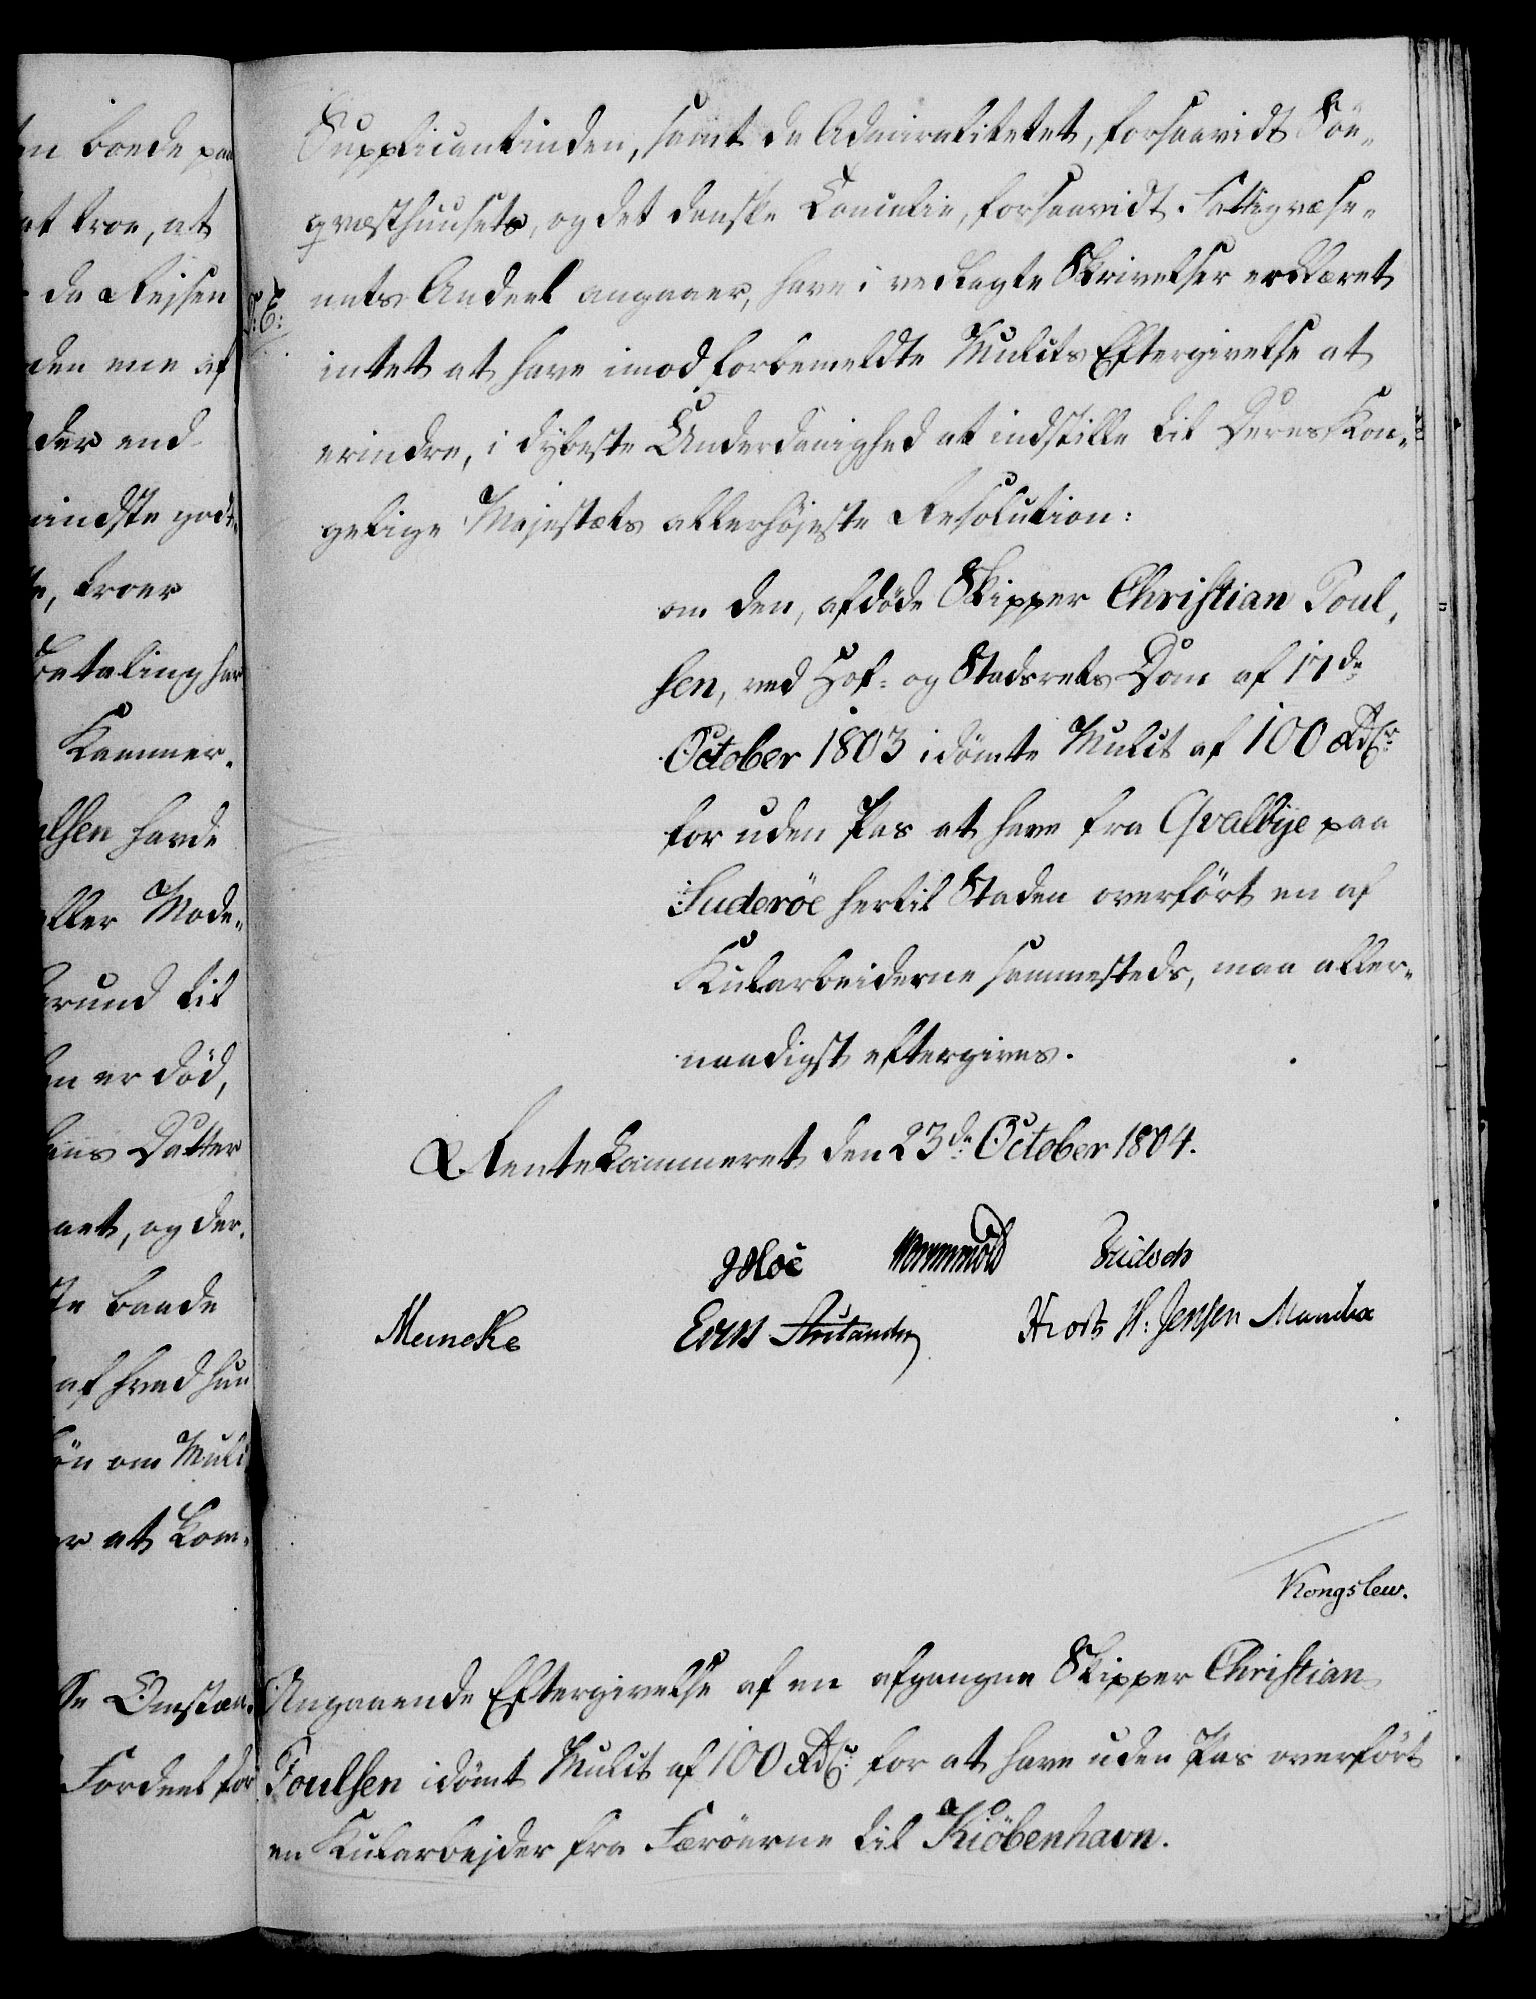 en boede paa
at troe, at
da Reisen
den ene af
der end
mindste godt„
troer
Betaling har
Kammer„
ulsen havde
eller Mode„
Grund til
en er død,
hans Datter
aet, og der„
te baade
af hvad hun
øn om Mulct
er at kom„
se Omstæn„
Fordeel for
Supplicantinden, samt da Admiralitetet, forsaavidt Söe„
qvæsthuusets, og det danske Cancelie, forsaavidt Fattigvæse„
nets Andeel angaaer, have i vedlagte Skrivelser erklæret
D: E:
intet at have imod forbemeldte Mulcts Eftergivelse at
erindre, i dybeste Underdanighed at indstille til Deres Kon„
gelige Majestæts allerhöjeste Resolution:
om den, afdöde Skipper Christian Poul„
sen, ved Hof- og Stadsrets Dom af 17de
October 1803 idömte Mulct af 100 Rdlr
for uden Pas at have fra Qvalbye paa
Suderöe hertil Staden overfört en af
Kularbeiderne sammesteds, maa aller„
naadigst eftergives.
Rentekammeret den 23de October 1804.
Wormskiold
Meineke
Hiort H: Jensen Manthe
Kongslew.
Angaaende Eftergivelse af en afgangne Skipper Christian
Poulsen idömt Mulct af 100 Rdlr for at have uden Pas overfört
en Kularbejder fra Færöerne til Kiöbenhavn.